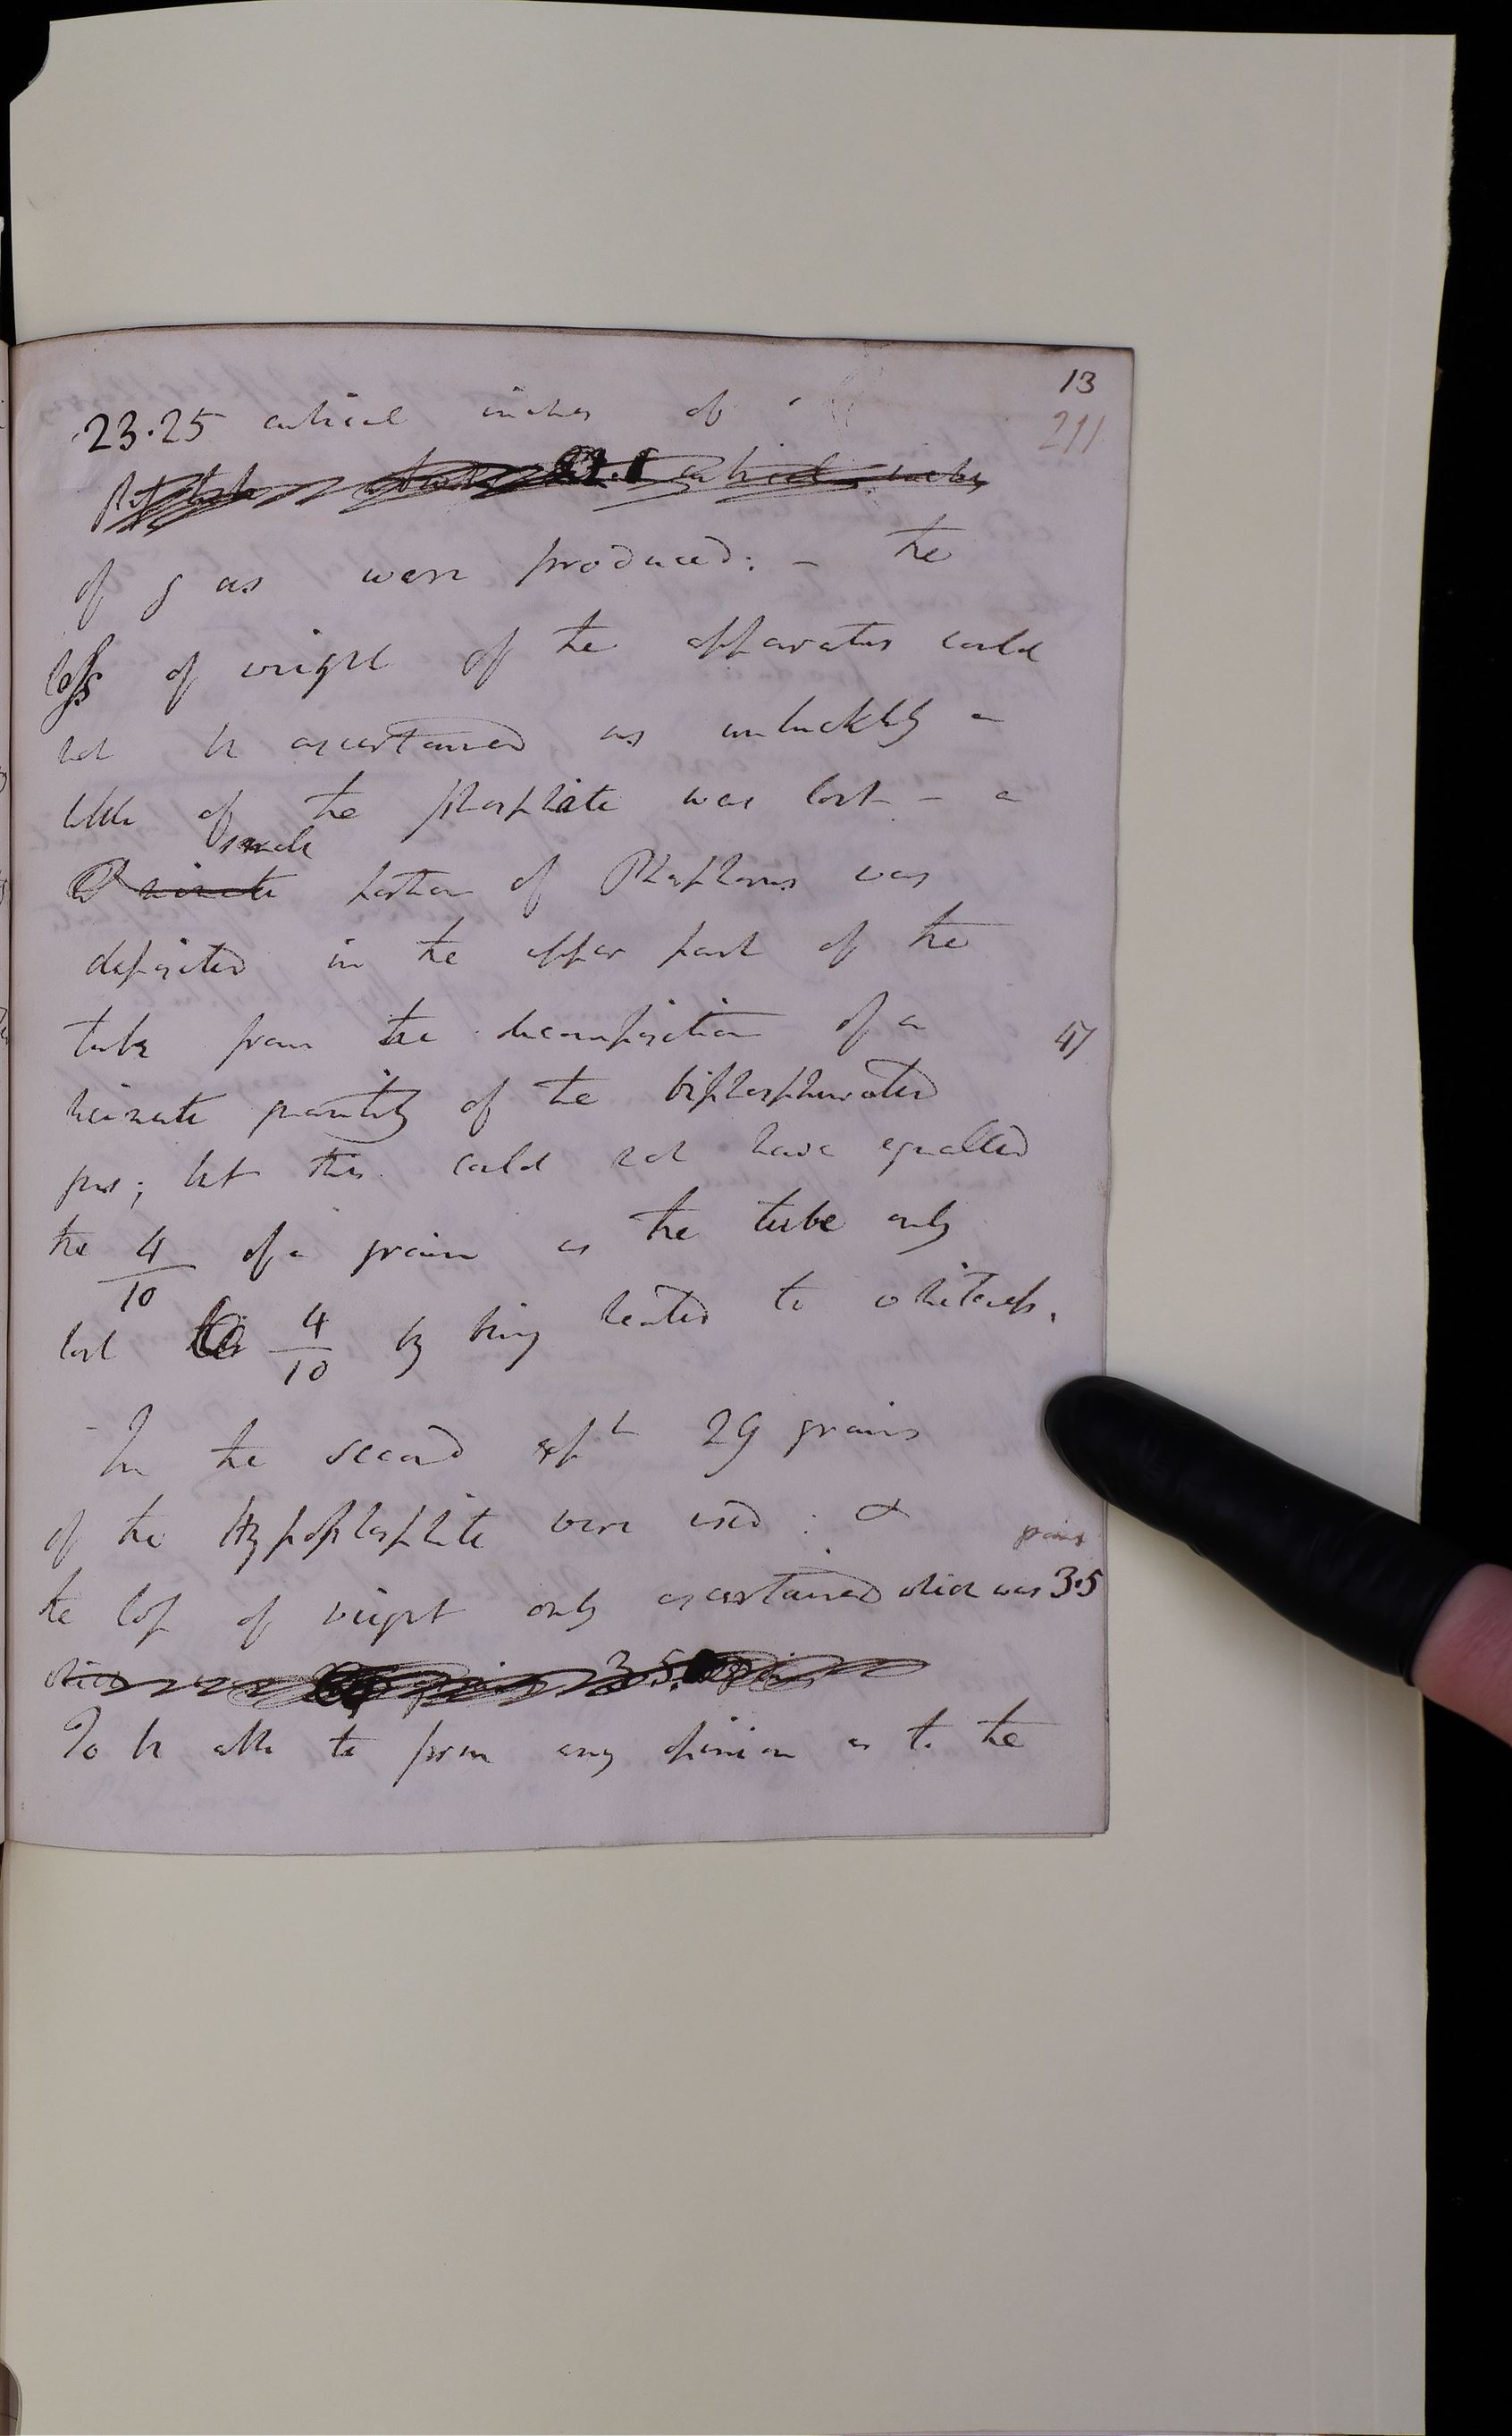 13
211
23.25 cubical inches of
cubical inches
of gas were produced: – the
loss of weight of the apparatus could
not be ascertained as unluckily a
little of the phosphite was lost – a
small
minute portion of Phosphorus was
deposited in the upper part of the
tube from the decomposition of a
47
minute quantity of the biphosphurated
gas; but this could not have equalled
the 4/10 of a grain as the tube only
lost 4/10 by being heated to whiteness.
– In the second expt 29 grains
of the Hypophosphite were used: &
grains
the loss of weight only ascertained which was 3.5
which 3.5
To be able to form any opinion as to the